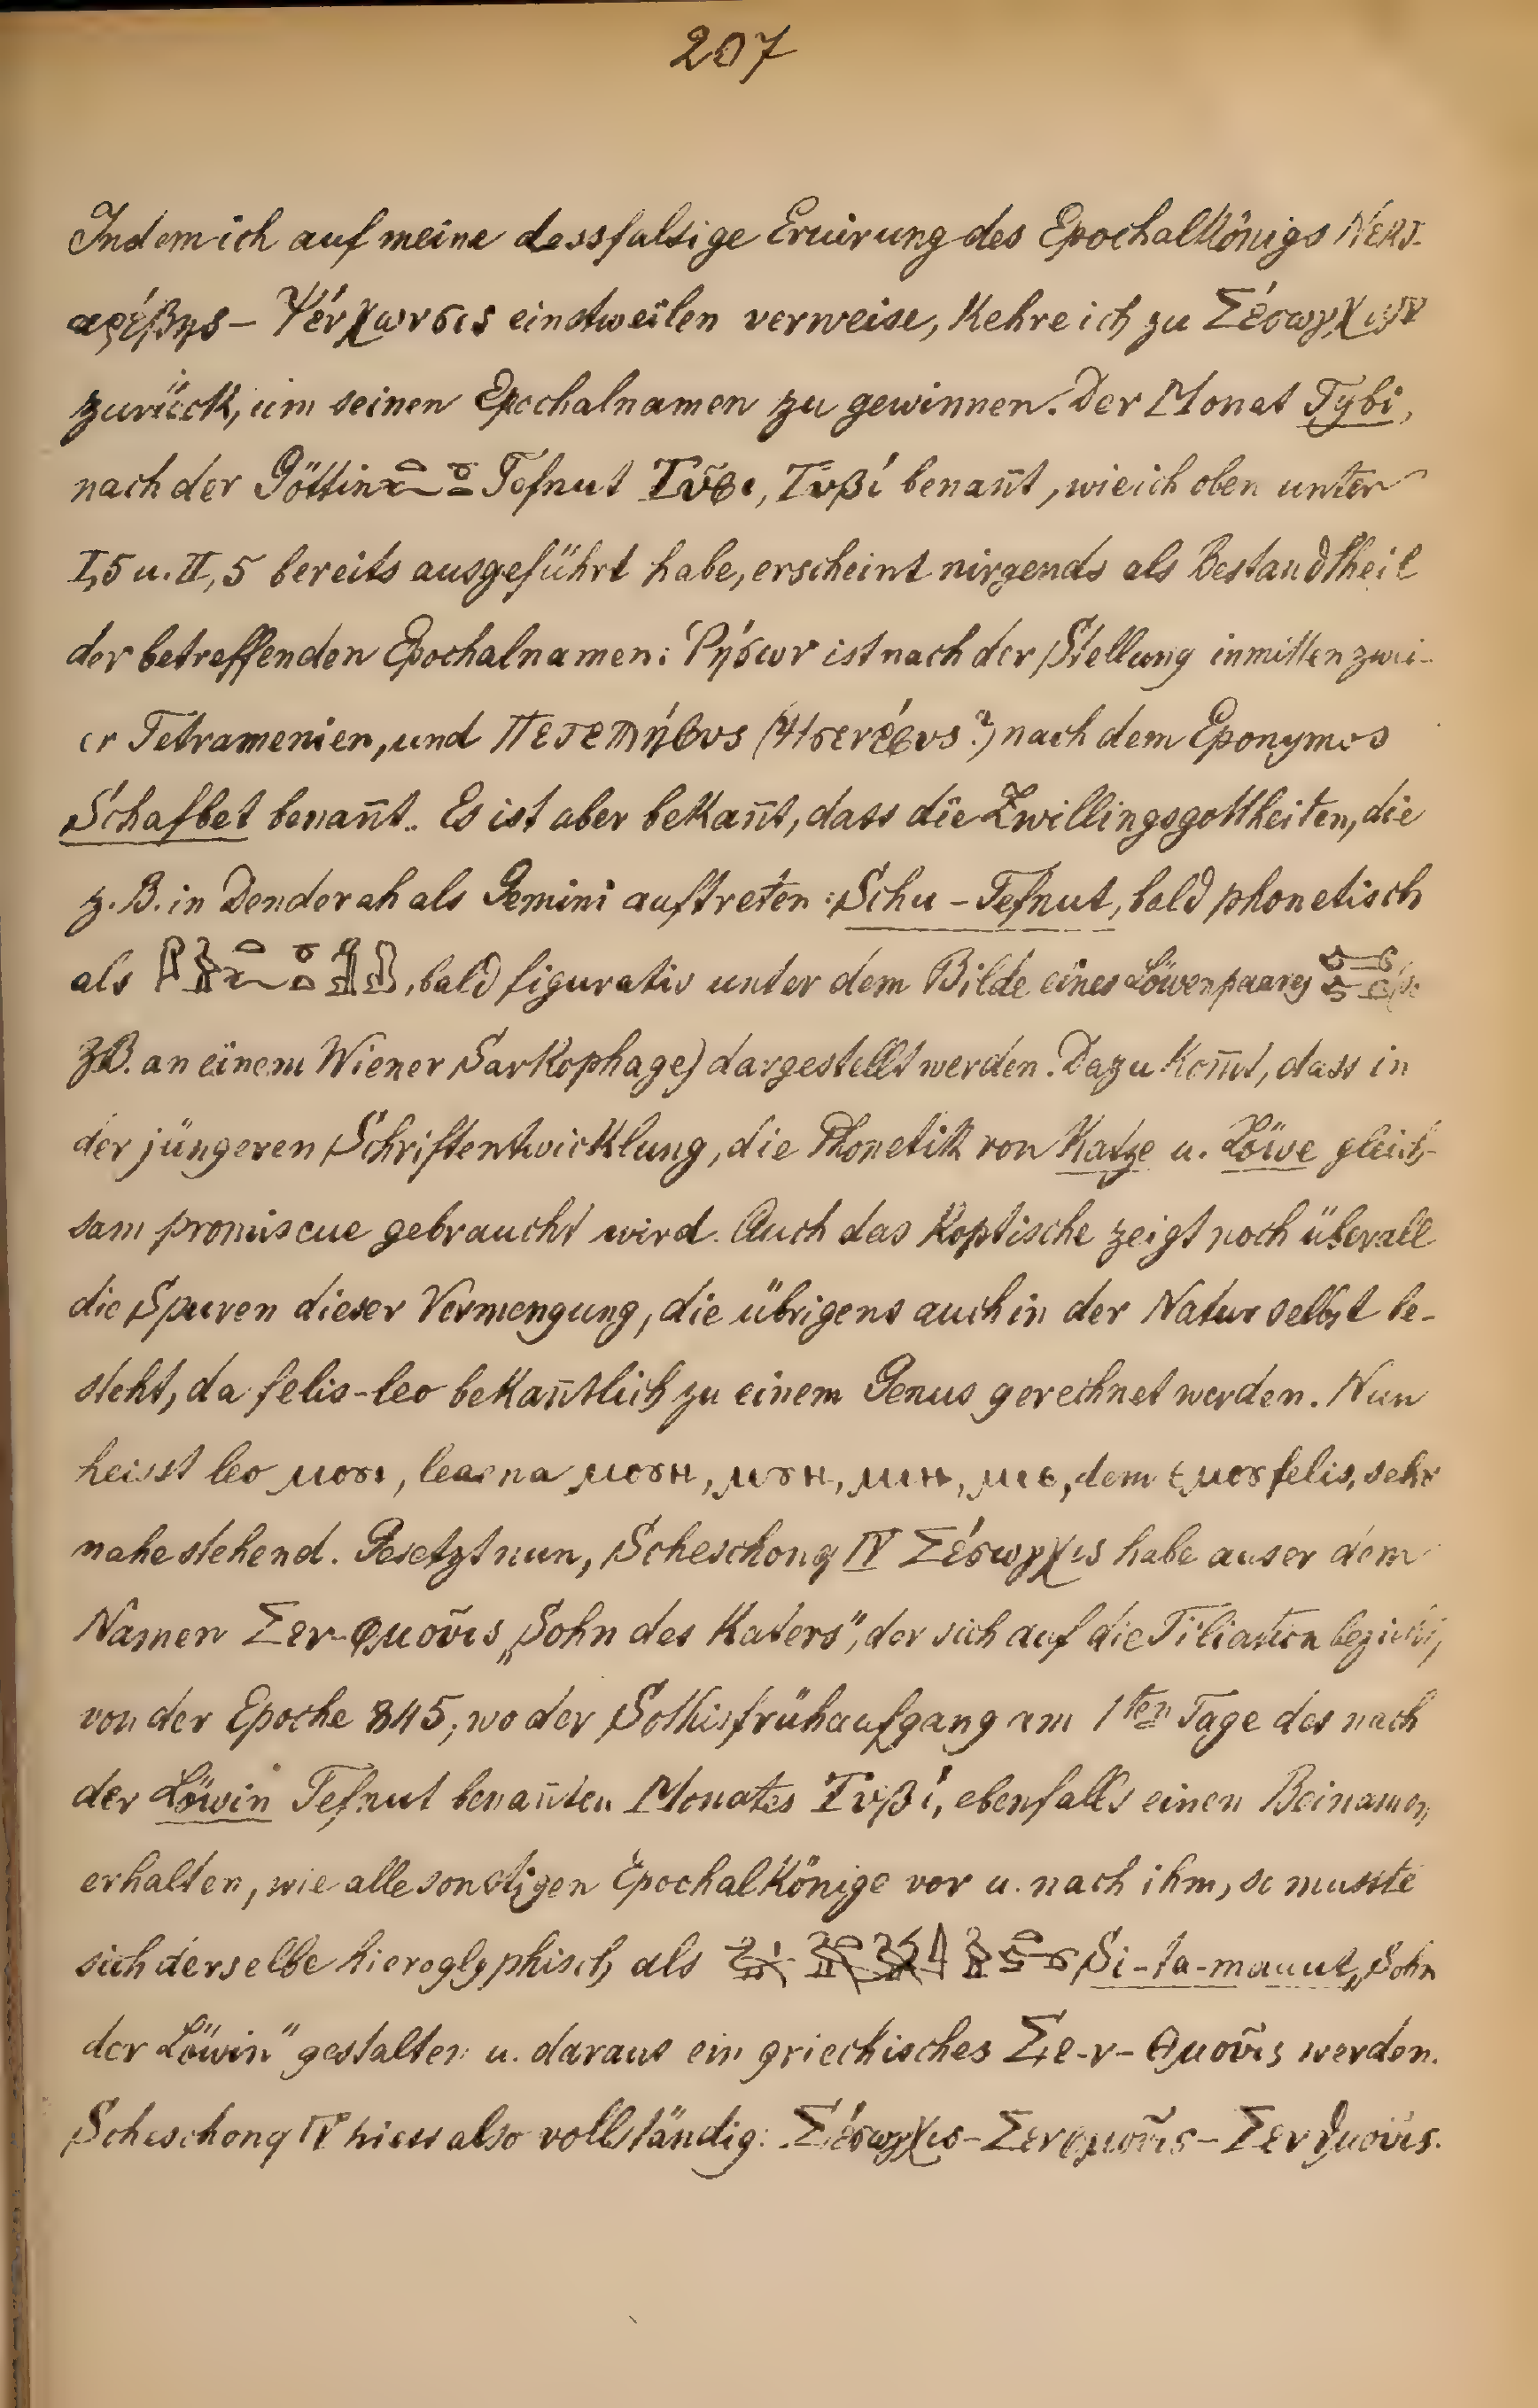 207
Indem ich auf meine dessfalsige Eruirung des Epochalkönigs Νεκτ-
αρέβης – Ψένχωνσις einstweilen verweise, kehre ich zu Σέσωγχις
zurück, um seinen Epochalnamen zu gewinnen. Der Monat Tybi,
nach der Göttin Tefnut Τῦβι, Τυβί benan̄t, wie ich oben unter
I,5 u. II,5 bereits ausgeführt habe, erscheint nirgends als Bestandtheil
der betreffenden Epochalnamen: Ῥήσων ist nach der Stellung inmitten zwei-
er Tetramenien, und nach dem Eponymos
Schafbet benan̄t. Es ist aber bekan̄t, dass die Zwillingsgottheiten, die
z. B. in Denderah als Gemini auftreten: Schu – Tefnut, bald phonetisch
als , bald figurativ unter dem Bilde eines Löwenpaares
z.B. an einem Wiener Sarkophage) dargestellt werden. Dazu kom̄t, dass in
der jüngeren Schriftentwicklung, die Phonetik von Katze u. Löwe gleich-
sam promiscue gebraucht wird. Auch das Koptische zeigt noch überall
die Spuren dieser Vermengung, die übrigens auch in der Natur selbst be-
steht, da felis-leo bekan̄tlich zu einem Genus gerechnet werden. Nun
heisst leo ⲙⲟⲩⲓ, leaena ⲙⲟⲩⲏ, ⲙⲩⲏ, ⲙⲓⲏ, ⲙⲓⲉ, dem ⲉⲙⲟⲩ felis, sehr
nahe stehend. Gesetzt nun, Scheschonq IV Σέσωγχις habe auser dem
Namen Σεν-φμοῦις „Sohn des Katers", der sich auf die Filiation bezieht,
von der Epoche 845, wo der Sothisfrühaufgang am 1ten Tage des nach
der Löwin Tefnut benan̄ten Monates Τυβί, ebenfalls einen Beinamen
erhalten, wie alle sonstigen Epochalkönige vor u. nach ihm, so musste
sich derselbe hieroglyphisch als Si-ta-mauut „Sohn
der Löwin" gestalten u. daraus ein griechisches Σε-ν-θμοῦις werden.
Scheschonq IV hiess also vollständig: Σέσωγχις – Σενφμοῦις – Σενθμοῦις.